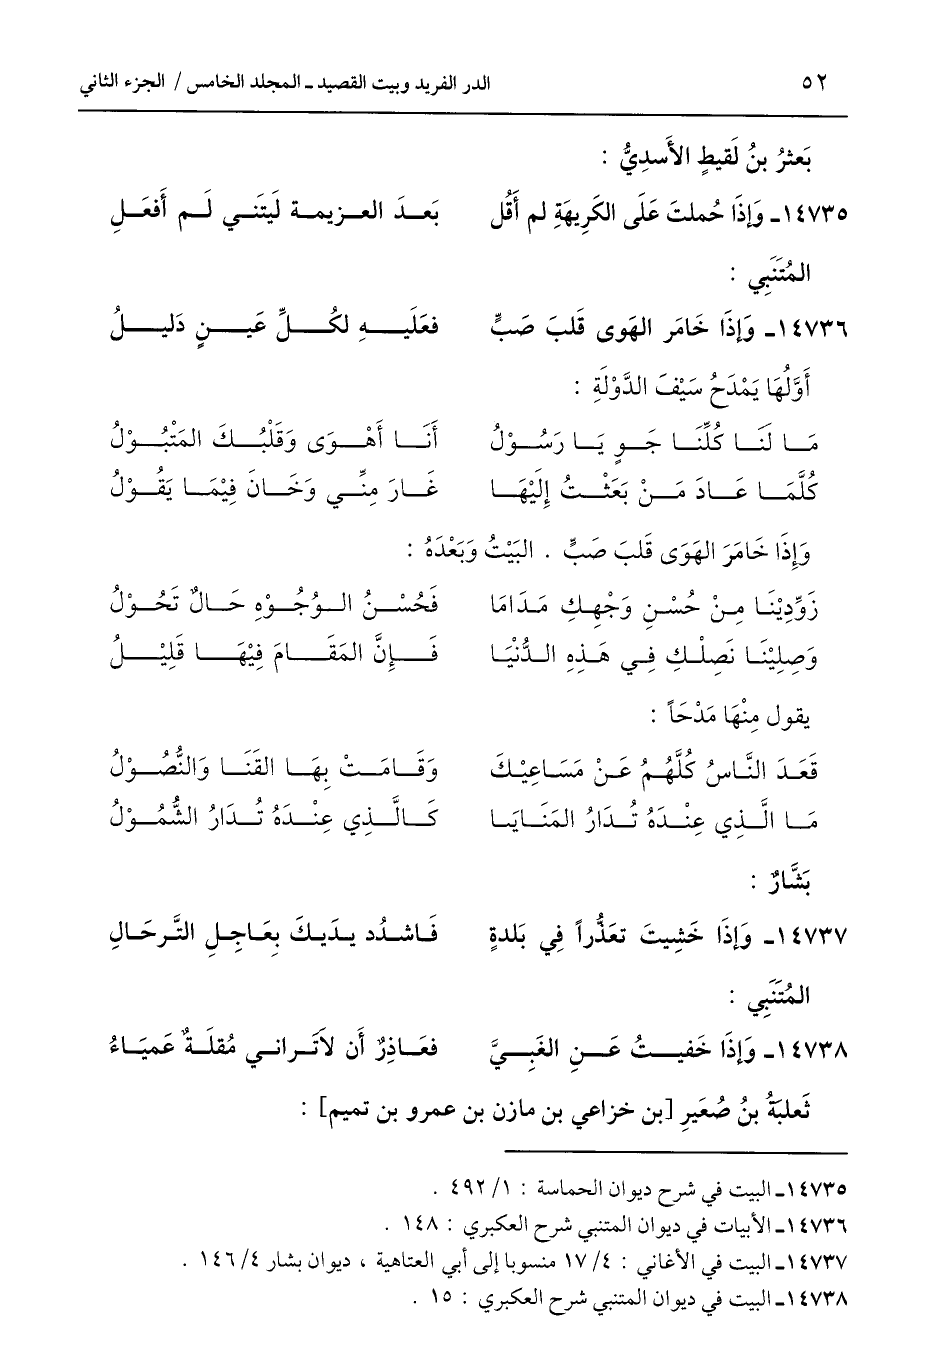 ٥٢ الدر الفريد وبيت القصيد ـ المجلد الخامس / الجزء الثاني
بَعثرُ بنُ لَقيطٍ الأَسدِيُّ :
١٤٧٣٥ـ وَإِذَا حُملتَ عَلَى الكَرِيهَةِ لم أَقُل بَعدَ العزيمة لَيتَني لَم أَفعَلِ
المُتَنَبِي :
١٤٧٣٦ـ وَإِذَا خَامَر الهَوى قَلبَ صَبٍّ فعَلَيهِ لكُلِّ عَينٍ دَليلُ
أَوَّلُهَا يَمْدَحُ سَيْفَ الدَّوْلَةِ :
مَا لَنَا كُلِّنَا جَوٍ يَا رَسُولُ أَنَا أَهْوَى وَقَلْبُكَ المَتْبُوْلُ
كُلَّمَا عَادَ مَنْ بَعَثْتُ إِلَيْهَا غَارَ مِنِّي وَخَانَ فِيْمَا يَقُوْلُ
وَإِذَا خَامَرَ الهَوَى قَلبَ صَبٍّ . البَيْتُ وَبَعْدَهُ :
زَوِّدِيْنَا مِنْ حُسْنِ وَجْهِكِ مَدَامَا فَحُسْنُ الوُجُوْهِ حَالٌ تَحُوْلُ
وَصِلِيْنَا نَصِلْكِ فِي هَذِهِ الدُّنْيَا فَإِنَّ المَقَامَ فِيْهَا قَلِيْلُ
يقول مِنْهَا مَدْحَاً :
قَعَدَ النَّاسُ كُلُّهُمُ عَنْ مَسَاعِيْكَ وَقَامَتْ بِهَا القَنَا وَالنُّصُوْلُ
مَا الَّذِي عِنْدَهُ تُدَارُ المَنَايَا كَالَّذِي عِنْدَهُ تُدَارُ الشُّمُوْلُ
بَشَّارٌ :
١٤٧٣٧ـ وَإِذَا خَشِيتَ تعَذُّراً فِي بَلدةٍ فَاشدُد يدَيكَ بِعَاجِلِ التَّرحَالِ
المُتَنَبِي :
١٤٧٣٨ـ وَإِذَا خَفيتُ عَنِ الغَبِيَّ فعَاذِرٌ أَن لاَتَراني مُقلَةٌ عَميَاءُ
ثَعلبَةُ بنُ صُعَيرِ [بن خزاعي بن مازن بن عمرو بن تميم] :
١٤٧٣٥ـ البيت في شرح ديوان الحماسة : ١/ ٤٩٢ .
١٤٧٣٦ـ الأبيات في ديوان المتنبي شرح العكبري : ١٤٨ .
١٤٧٣٧ـ البيت في الأغاني : ٤/ ١٧ منسوبا إلى أبي العتاهية ، ديوان بشار ٤/ ١٤٦ .
١٤٧٣٨ـ البيت في ديوان المتنبي شرح العكبري : ١٥ .